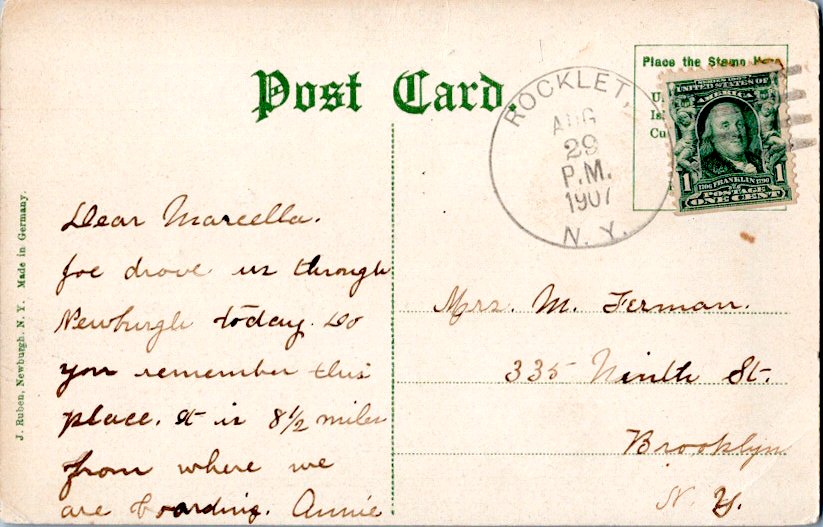 Post Card.
Place the Stamp Here
ROCKLET, 
AUG
29
P.M.
1907
N. Y.
SERIES 1902
UNITED STATES OF
AMERICA
1706 FRANKLIN 1790
1 POSTAGE 1
ONE CENT
J. Ruben, Newburgh, N. Y. Made in Germany.
Dear Marcella.
Joe drove us through
Newburgh today. Do
you remember this
place. It is 8 1/2 miles
from where we
are boarding. Annie
Mrs. M. Ferman.
335 Ninth St.
Brooklyn
N. Y.